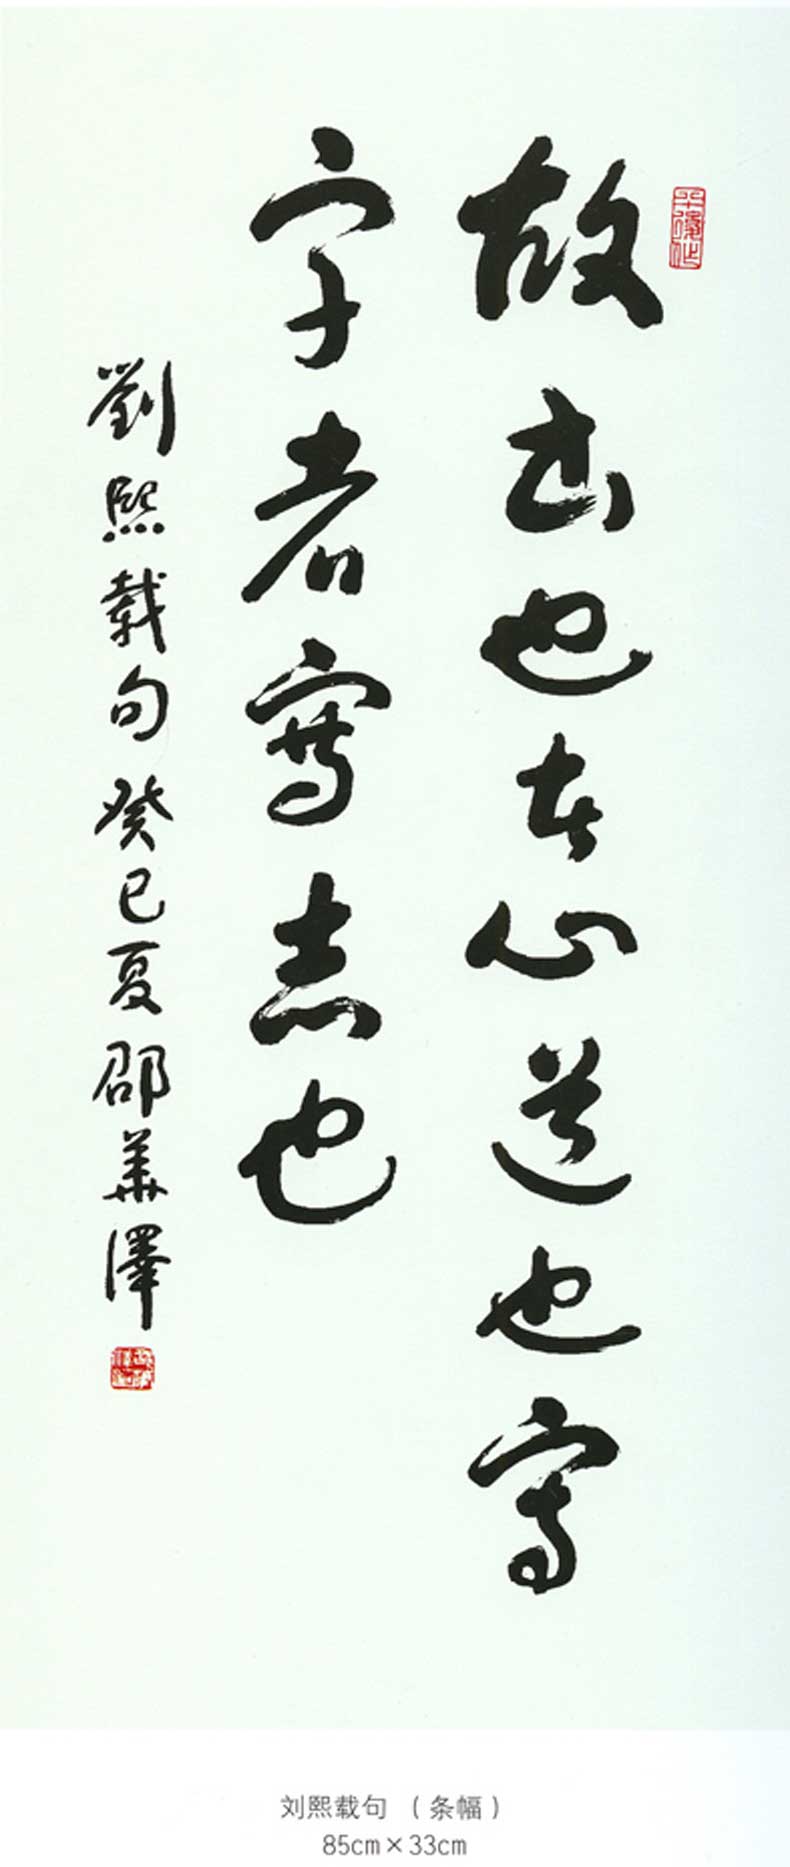 故书也者心道也寫
字者寫志也
劉熙载句 癸巳夏 邵華澤
刘熙载句 （条幅）
85cm×33cm